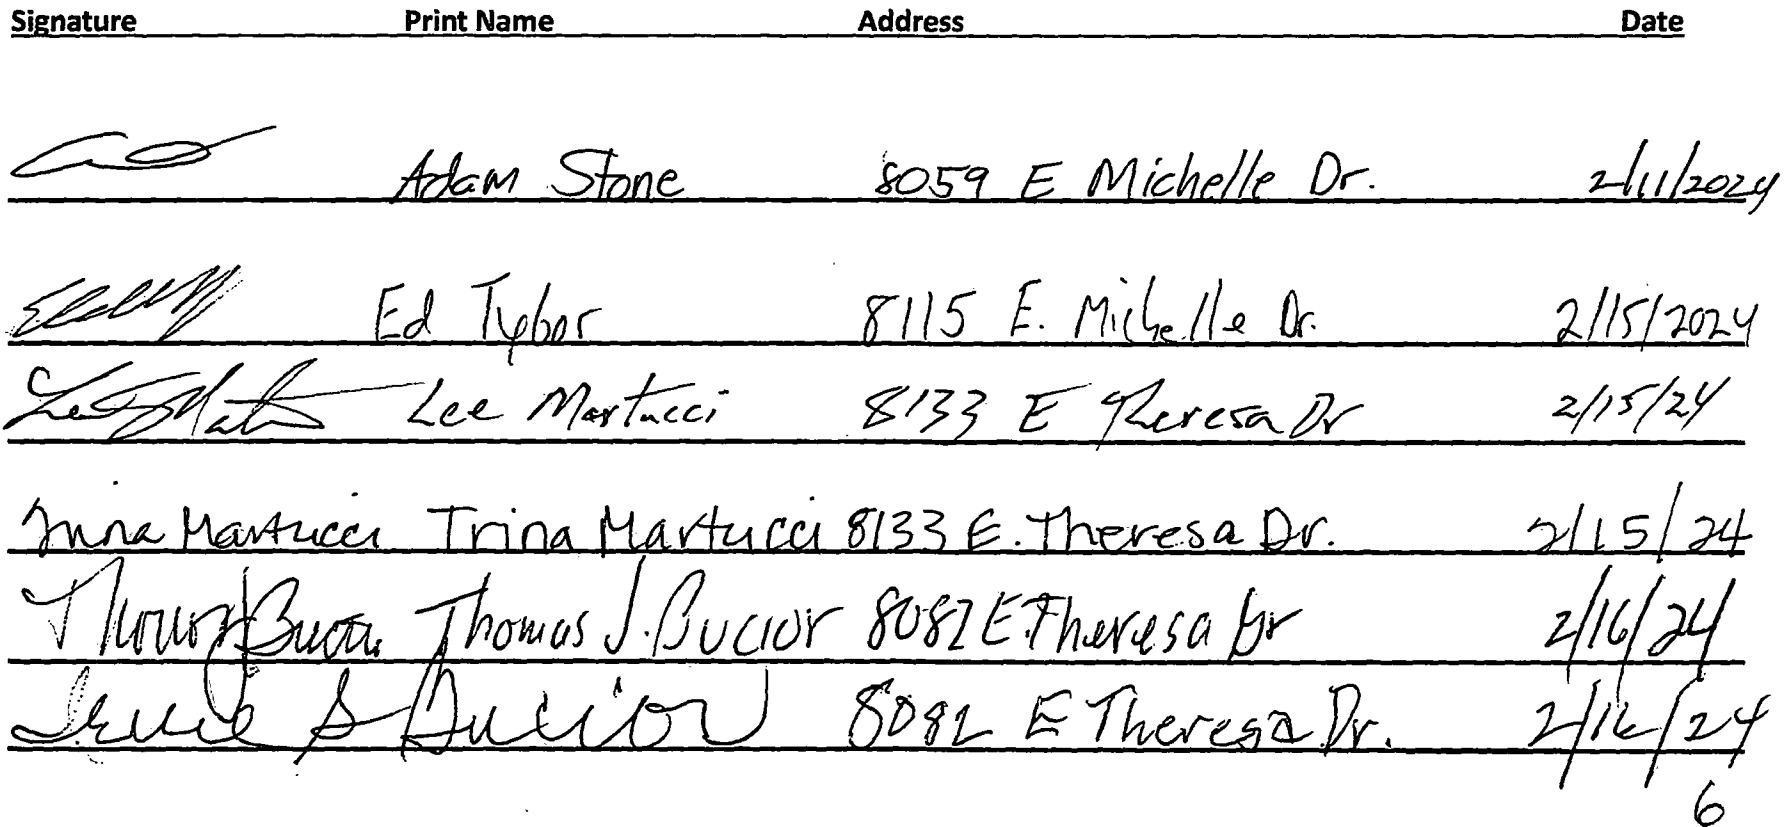 Signature Print Name Address Date
Adam Stone 8059 E Michelle Dr. 2/11/2024
Ed Tybor 8115 E. Michelle Dr. 2/15/2024
Lee Martucci 8133 E Theresa Dr 2/15/24
Trina Martucci Trina Martucci 8133 E. Theresa Dr. 2/15/24
Thomas J Bucior Thomas J. Bucior 8082 E Theresa Dr 2/16/24
Irene S Bucior 8082 E Theresa Dr. 2/16/24
6